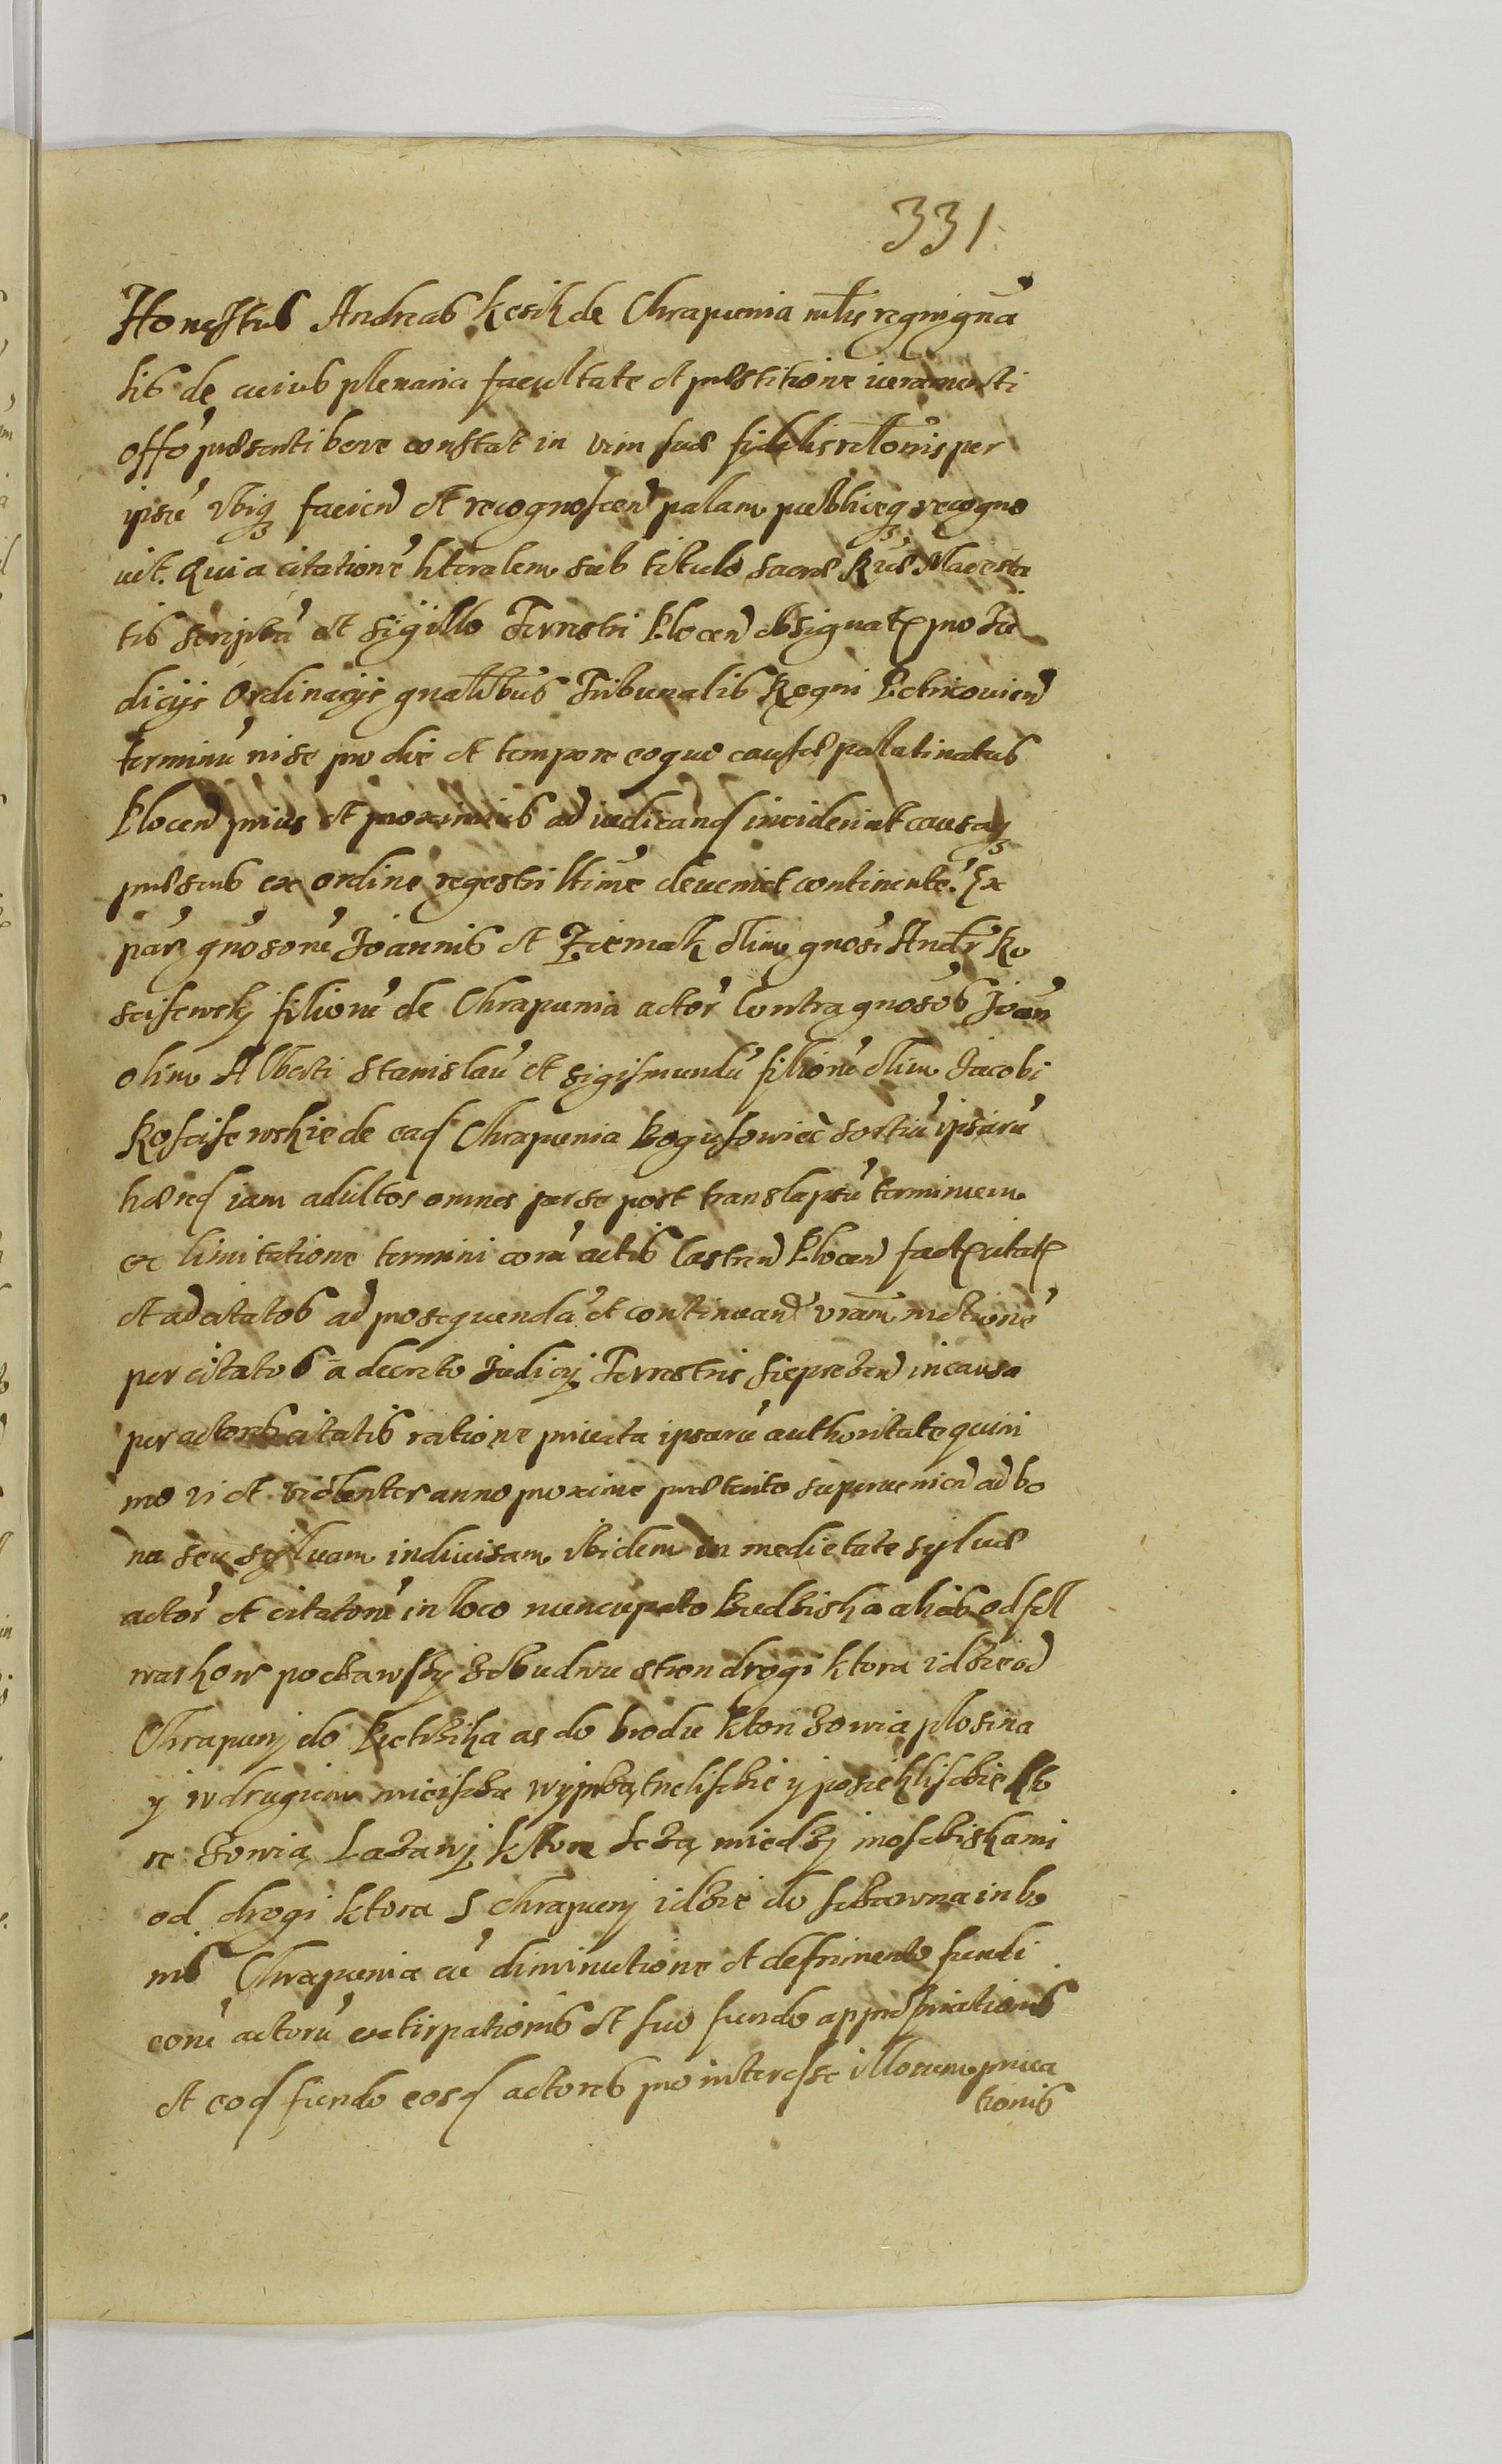 331
Honestus Andreas Kesik de Chrapunia mlis regni gna
lis de cuius plenaria facultate et præstitione iuramenti
offo præsenti bene constat in vim suæ fidelis relonis per
ipsu vbiq facien et recognoscen palam publiceq recogno
uit. Quia citatione literalem sub titulo sacræ Ræ Maiesta
tis scripta et sigillo Terrestri Plocen obsignat pro Iu
dicijs Ordinarijs gnalibus Tribunalis Regni Petricouien
terminu rite pro die et tempore eoque causæ pallatinatus
Plocen prius et proximius ad iudicand inciderint causaq
præsens ex ordine regestri ltime deueniet continente. Ex
par gnosoru Joannis et Ziemak olim gnosi Andr Ko
scisewskj filioru de Chrapunia actor Contra gnosos Joan
olim Alberti Stanislau et Sigismundu filioru olim Jacobi
Koscisewskie de ead Chrapunia Bogusowiec sortiu ipsaru
hæred iam adultos omnes per se post translapsu terminum
ex limitatione termini cora actis Castren Plocen fact citat
et adcitatos ad prosequenda et continuand vram motione
per citatos a decreto Judicij Terrestris Sieprecen in causa
per actores citatis ratione priuata ipsaru authoritate quini
mo vi et violenter anno proxime præterito superuenien ad bo
na seu syluam indiuisam ibidem in medietate syluæ
actor et citatoru in loco nuncupato Budziska alias od fol
warkow poczawszy zobudwu stron drogi ktora idzie od
Chrapunj do Pietrzika as do brodu ktori zowia plosina
y w drugiem mieisczu wyprzątneliscie y posiekliscie kto
re zowią Lazawj ktore leżą miedzj moscziskami
od drogi ktora s Chrapunj idzie do sczawna in bo
nis Chrapunia cu diminutione et detrimento fundi
eoru actoru extirpationis et suo fundo appropriationis
et eod fundo eosd actores pro interesse illorum priua
tionis